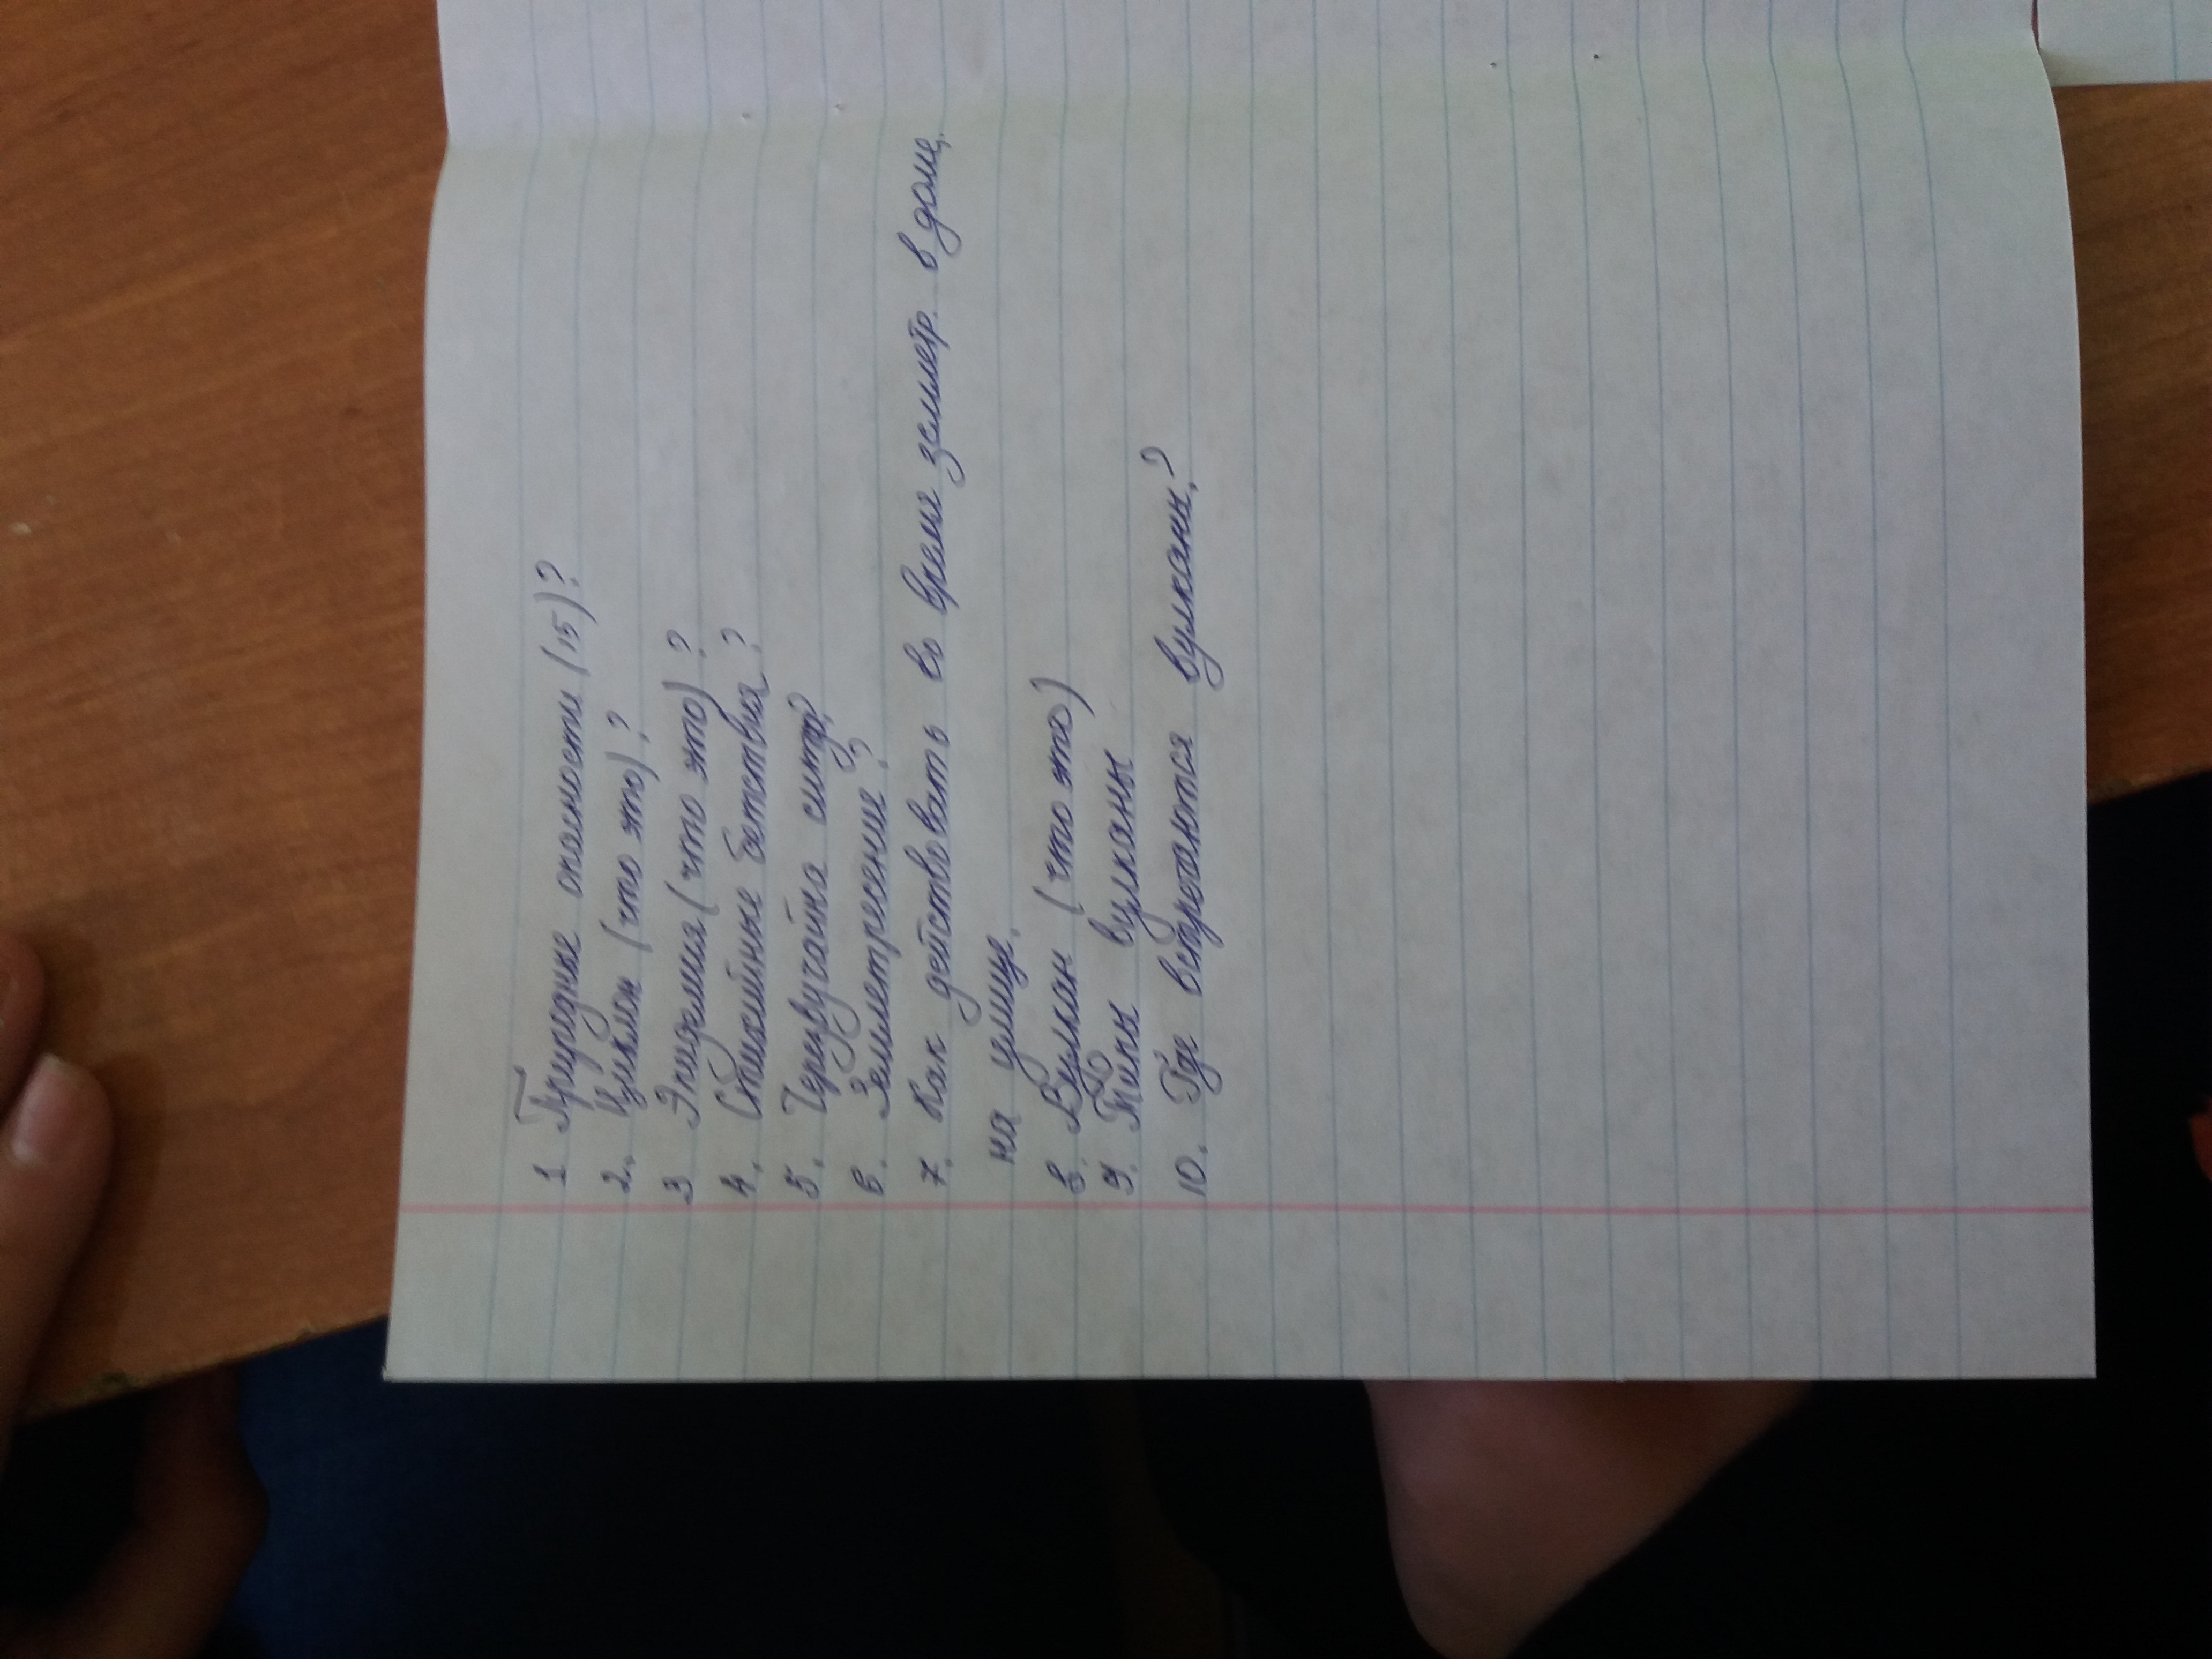 1 Природные опасности (15)?
2. Циклон (что это)?
3 Эпидемия (что это)?
4. Стихийные бетствия?
5. Черезвучайна ситуа?
6. Землетресение?
7. Как действовать во время землетр. в доме,
на улице.
8. Вулкан (что это)
9. Типы вулканы
10. Где встретаются вулканы?